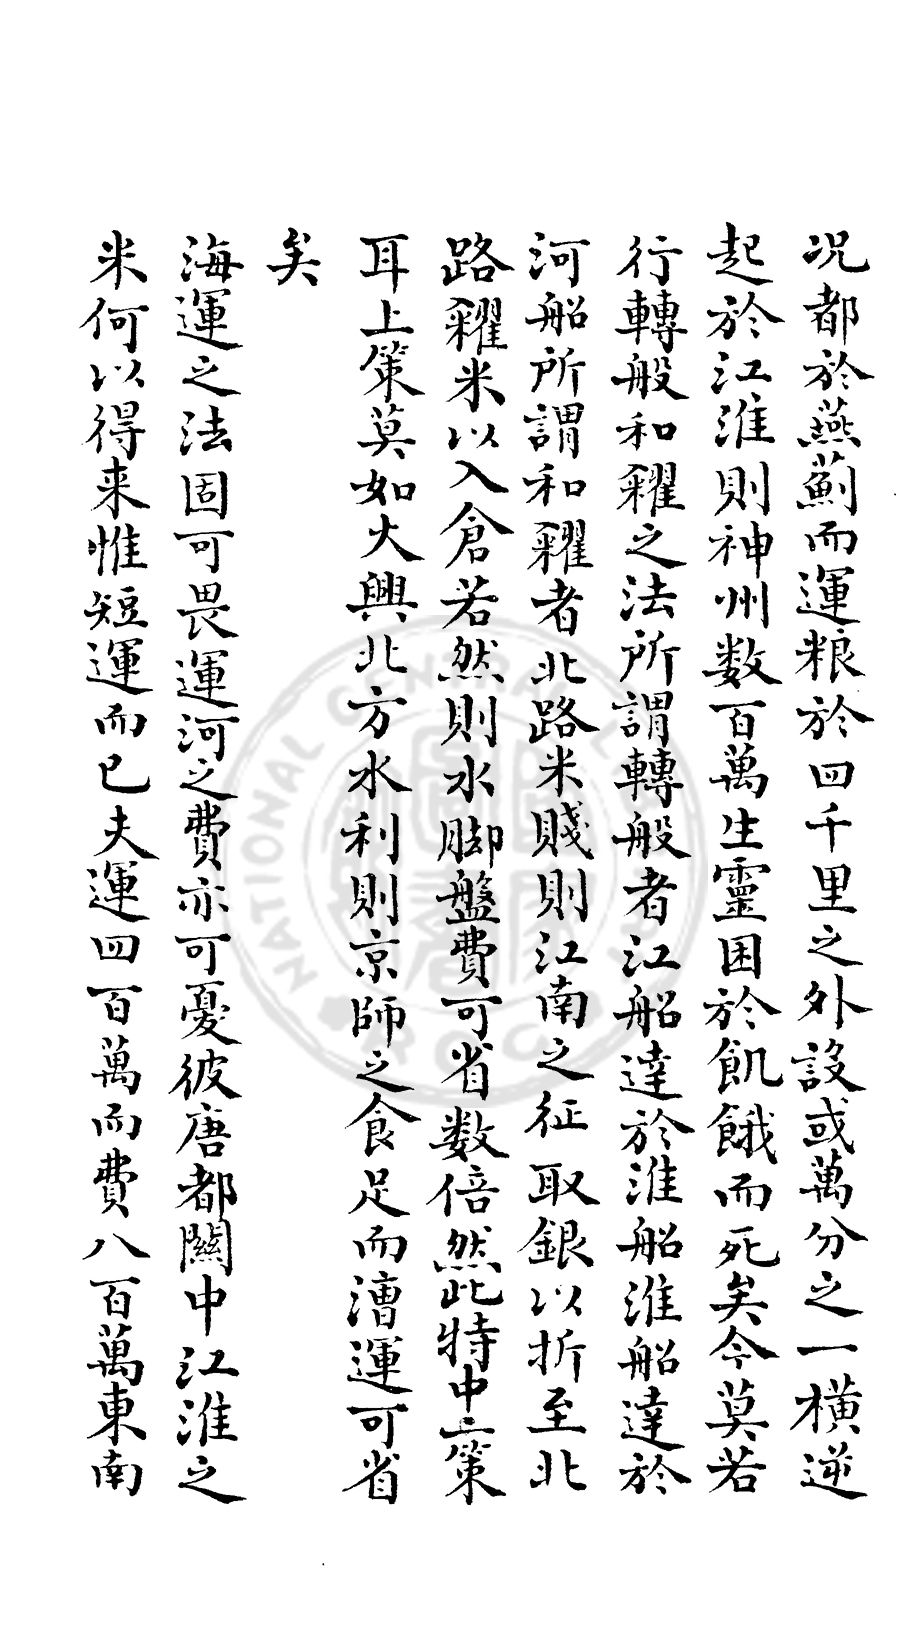 况都於燕薊而運粮於四千里之外設或萬分之一橫逆
起於江淮則神州数百萬生靈困於飢餓而死矣今莫若
行轉般和糴之法所謂轉般者江船達於淮船淮船達於
河船所謂和糴者北路米賤則江南之征取銀以折至北
路糴米以入倉若然則水脚盤費可省数倍然此特中上策
耳上策莫如大興北方水利則京師之食足而漕運可省
矣
海運之法固可畏運河之費亦可憂彼唐都關中江淮之
米何以得来惟短運而已夫運四百萬而費八百萬東南
NATIONAL CENTRAL LIBRARY R.O.C.